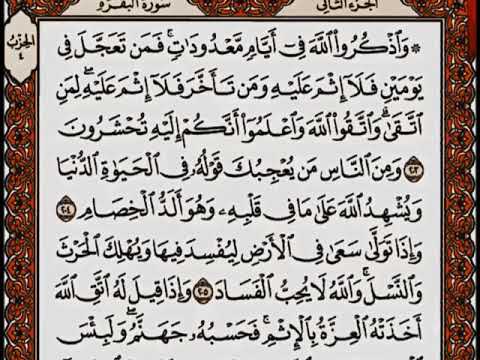 الجزء الثاني
سورة البقرة
الحزب
٤
۞ وَٱذْكُرُوا۟ ٱللَّهَ فِىٓ أَيَّامٍ مَّعْدُودَٰتٍ ۚ فَمَن تَعَجَّلَ فِى
يَوْمَيْنِ فَلَآ إِثْمَ عَلَيْهِ وَمَن تَأَخَّرَ فَلَآ إِثْمَ عَلَيْهِ ۚ لِمَنِ
ٱتَّقَىٰ ۗ وَٱتَّقُوا۟ ٱللَّهَ وَٱعْلَمُوٓا۟ أَنَّكُمْ إِلَيْهِ تُحْشَرُونَ
٢٠٣ وَمِنَ ٱلنَّاسِ مَن يُعْجِبُكَ قَوْلُهُۥ فِى ٱلْحَيَوٰةِ ٱلدُّنْيَا
وَيُشْهِدُ ٱللَّهَ عَلَىٰ مَا فِى قَلْبِهِۦ وَهُوَ أَلَدُّ ٱلْخِصَامِ ٢٠٤
وَإِذَا تَوَلَّىٰ سَعَىٰ فِى ٱلْأَرْضِ لِيُفْسِدَ فِيهَا وَيُهْلِكَ ٱلْحَرْثَ
وَٱلنَّسْلَ ۗ وَٱللَّهُ لَا يُحِبُّ ٱلْفَسَادَ ٢٠٥ وَإِذَا قِيلَ لَهُ ٱتَّقِ ٱللَّهَ
أَخَذَتْهُ ٱلْعِزَّةُ بِٱلْإِثْمِ ۚ فَحَسْبُهُۥ جَهَنَّمُ ۚ وَلَبِئْسَ